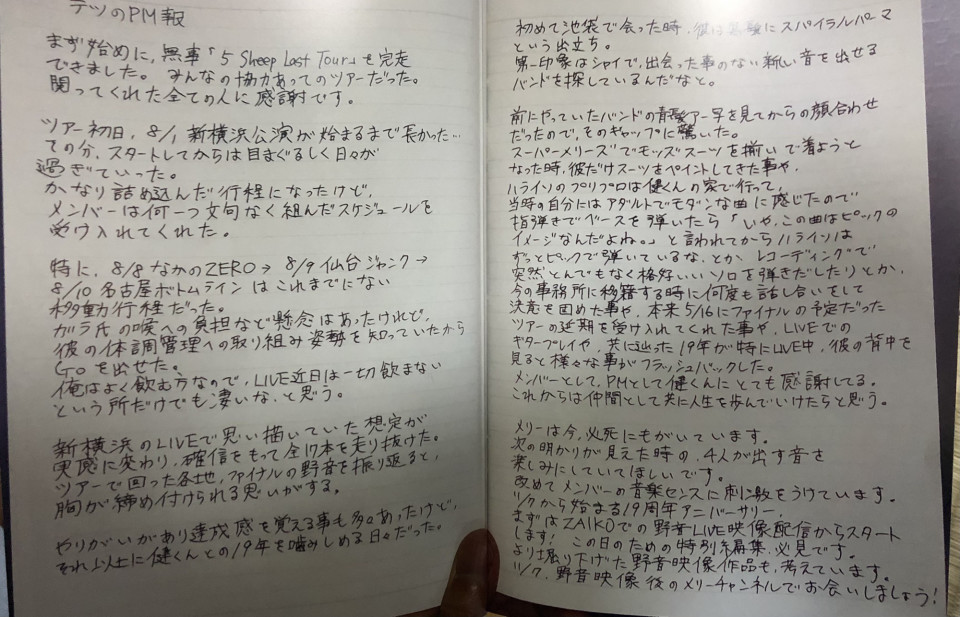 テツのPM報
まず始めに、無事「5 Sheep Last Tour」を完走
できました。みんなの協力あってのツアーだった。
関ってくれた全ての人に感謝です。
ツアー初日、8/1 新横浜公演が始まるまで長かった…
その分、スタートしてからは目まぐるしく日々が
過ぎていった。
かなり詰め込んだ行程になったけど、
メンバーは何一つ文句なく組んだスケジュールを
受け入れてくれた。
特に、8/8 なかのZERO→ 8/9 仙台ジャンク→
8/10 名古屋ボトムラインはこれまでにない
移動行程だった。
ガラ氏の喉への負担など懸念はあったけれど、
彼の体調管理への取り組み姿勢を知っていたから
Goを出せた。
俺はよく飲む方なので、LIVE近日は一切飲まない
という所だけでも凄いな、と思う。
新横浜のLIVEで思い描いていた想定が
実感に変わり、確信をもって全17本を走り抜けた。
ツアーで回った各地、ファイナルの野音を振り返ると、
胸が締め付けられる思いがする。
やりがいがあり達成感を覚える事も多々あったけど、
それ以上に健くんとの19年を噛みしめる日々だった。
初めて池袋で会った時、彼は にスパイラルパーマ
という出立ち。
第一印象はシャイで、出会った事のない新しい音を出せる
バンドを探しているんだなと。
前にやっていたバンドの青髪アー写を見てからの顔合わせ
だったので、そのギャップに驚いた。
スーパーメリーズでモッズスーツを揃いで着ようと
なった時、彼だけスーツをペイントしてきた事や、
ハライソのプリプロは健くんの家で行って、
当時の自分にはアダルトでモダンな曲に感じたので
指弾きでベースを弾いたら「いや、この曲はピックの
イメージなんだよね。」と言われてからハライソは
ずっとピックで弾いているな、とか、レコーディングで
突然とんでもなく格好いいソロを弾きだしたりとか、
今の事務所に移籍する時に何度も話し合いをして
決意を固めた事や、本来5/16にファイナルの予定だった
ツアーの延期を受け入れてくれた事や、LIVEでの
ギタープレイや、共に辿った19年が特にLIVE中、彼の背中を
見ると様々な事がフラッシュバックした。
メンバーとして、PMとして健くんにとても感謝してる。
これからは仲間として共に人生を歩んでいけたらと思う。
メリーは今、必死にもがいています。
次の明かりが見えた時の、4人が出す音を
楽しみにしていてほしいです。
改めてメンバーの音楽センスに刺激をうけています。
ツノクから始まる19周年アニバーサリー、
まずはZAIKOでの野音LIVE映像配信からスタート
します！この日のための特別編集、必見です。
より掘り下げた野音映像作品も、考えています。
ツノク、野音映像後のメリーチャンネルでお会いしましょう！